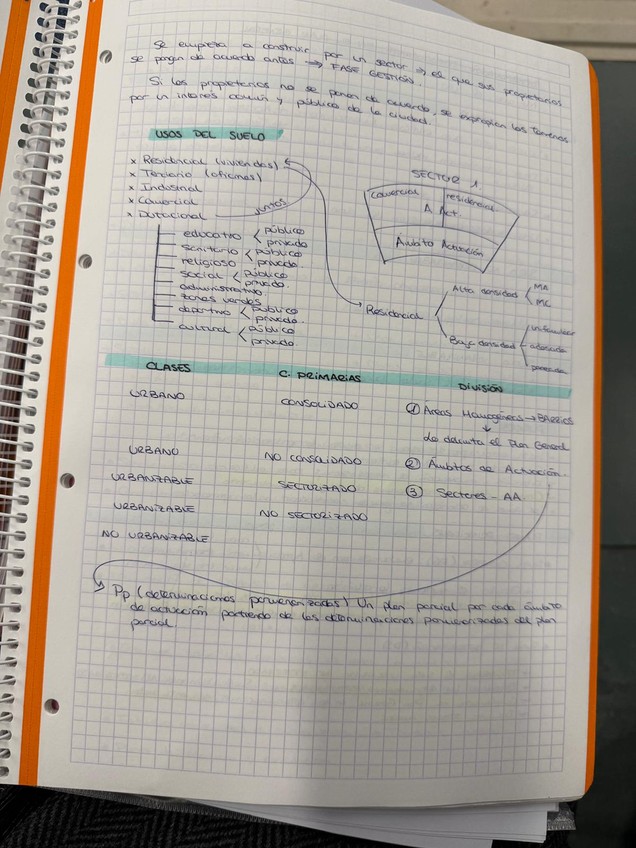 Se empieza a construir por un sector → el que sus propietarios
se pongan de acuerdo antes → FASE GESTIÓN.
Si los propietarios no se ponen de acuerdo, se expropian los terrenos
por un interés común y público de la ciudad.
USOS DEL SUELO
x Residencial (viviendas)
x Terciario (oficinas)
x Industrial
x Comercial
x Dotacional
juntos
educativo < público
privado
sanitario < público
religioso privado
social < público
privado.
administrativo
zonas verdes
deportivo < público
privado.
cultural < público
privado.
SECTOR 1
comercial residencial
A. Act.
Ámbito Actuación
Residencial
Alta densidad < MA
MC
Baja densidad unifamiliar
adosada
pareada
CLASES C. PRIMARIAS DIVISIÓN
URBANO CONSOLIDADO ① Áreas Homogéneas → BARRIOS
↓
Lo delimita el Plan General
URBANO NO CONSOLIDADO ② Ámbitos de Actuación
URBANIZABLE SECTORIZADO ③ Sectores - AA
URBANIZABLE NO SECTORIZADO
NO URBANIZABLE
Pp (determinaciones pormenorizadas) Un plan parcial por cada ámbito
de actuación partiendo de las determinaciones pormenorizadas del plan
parcial